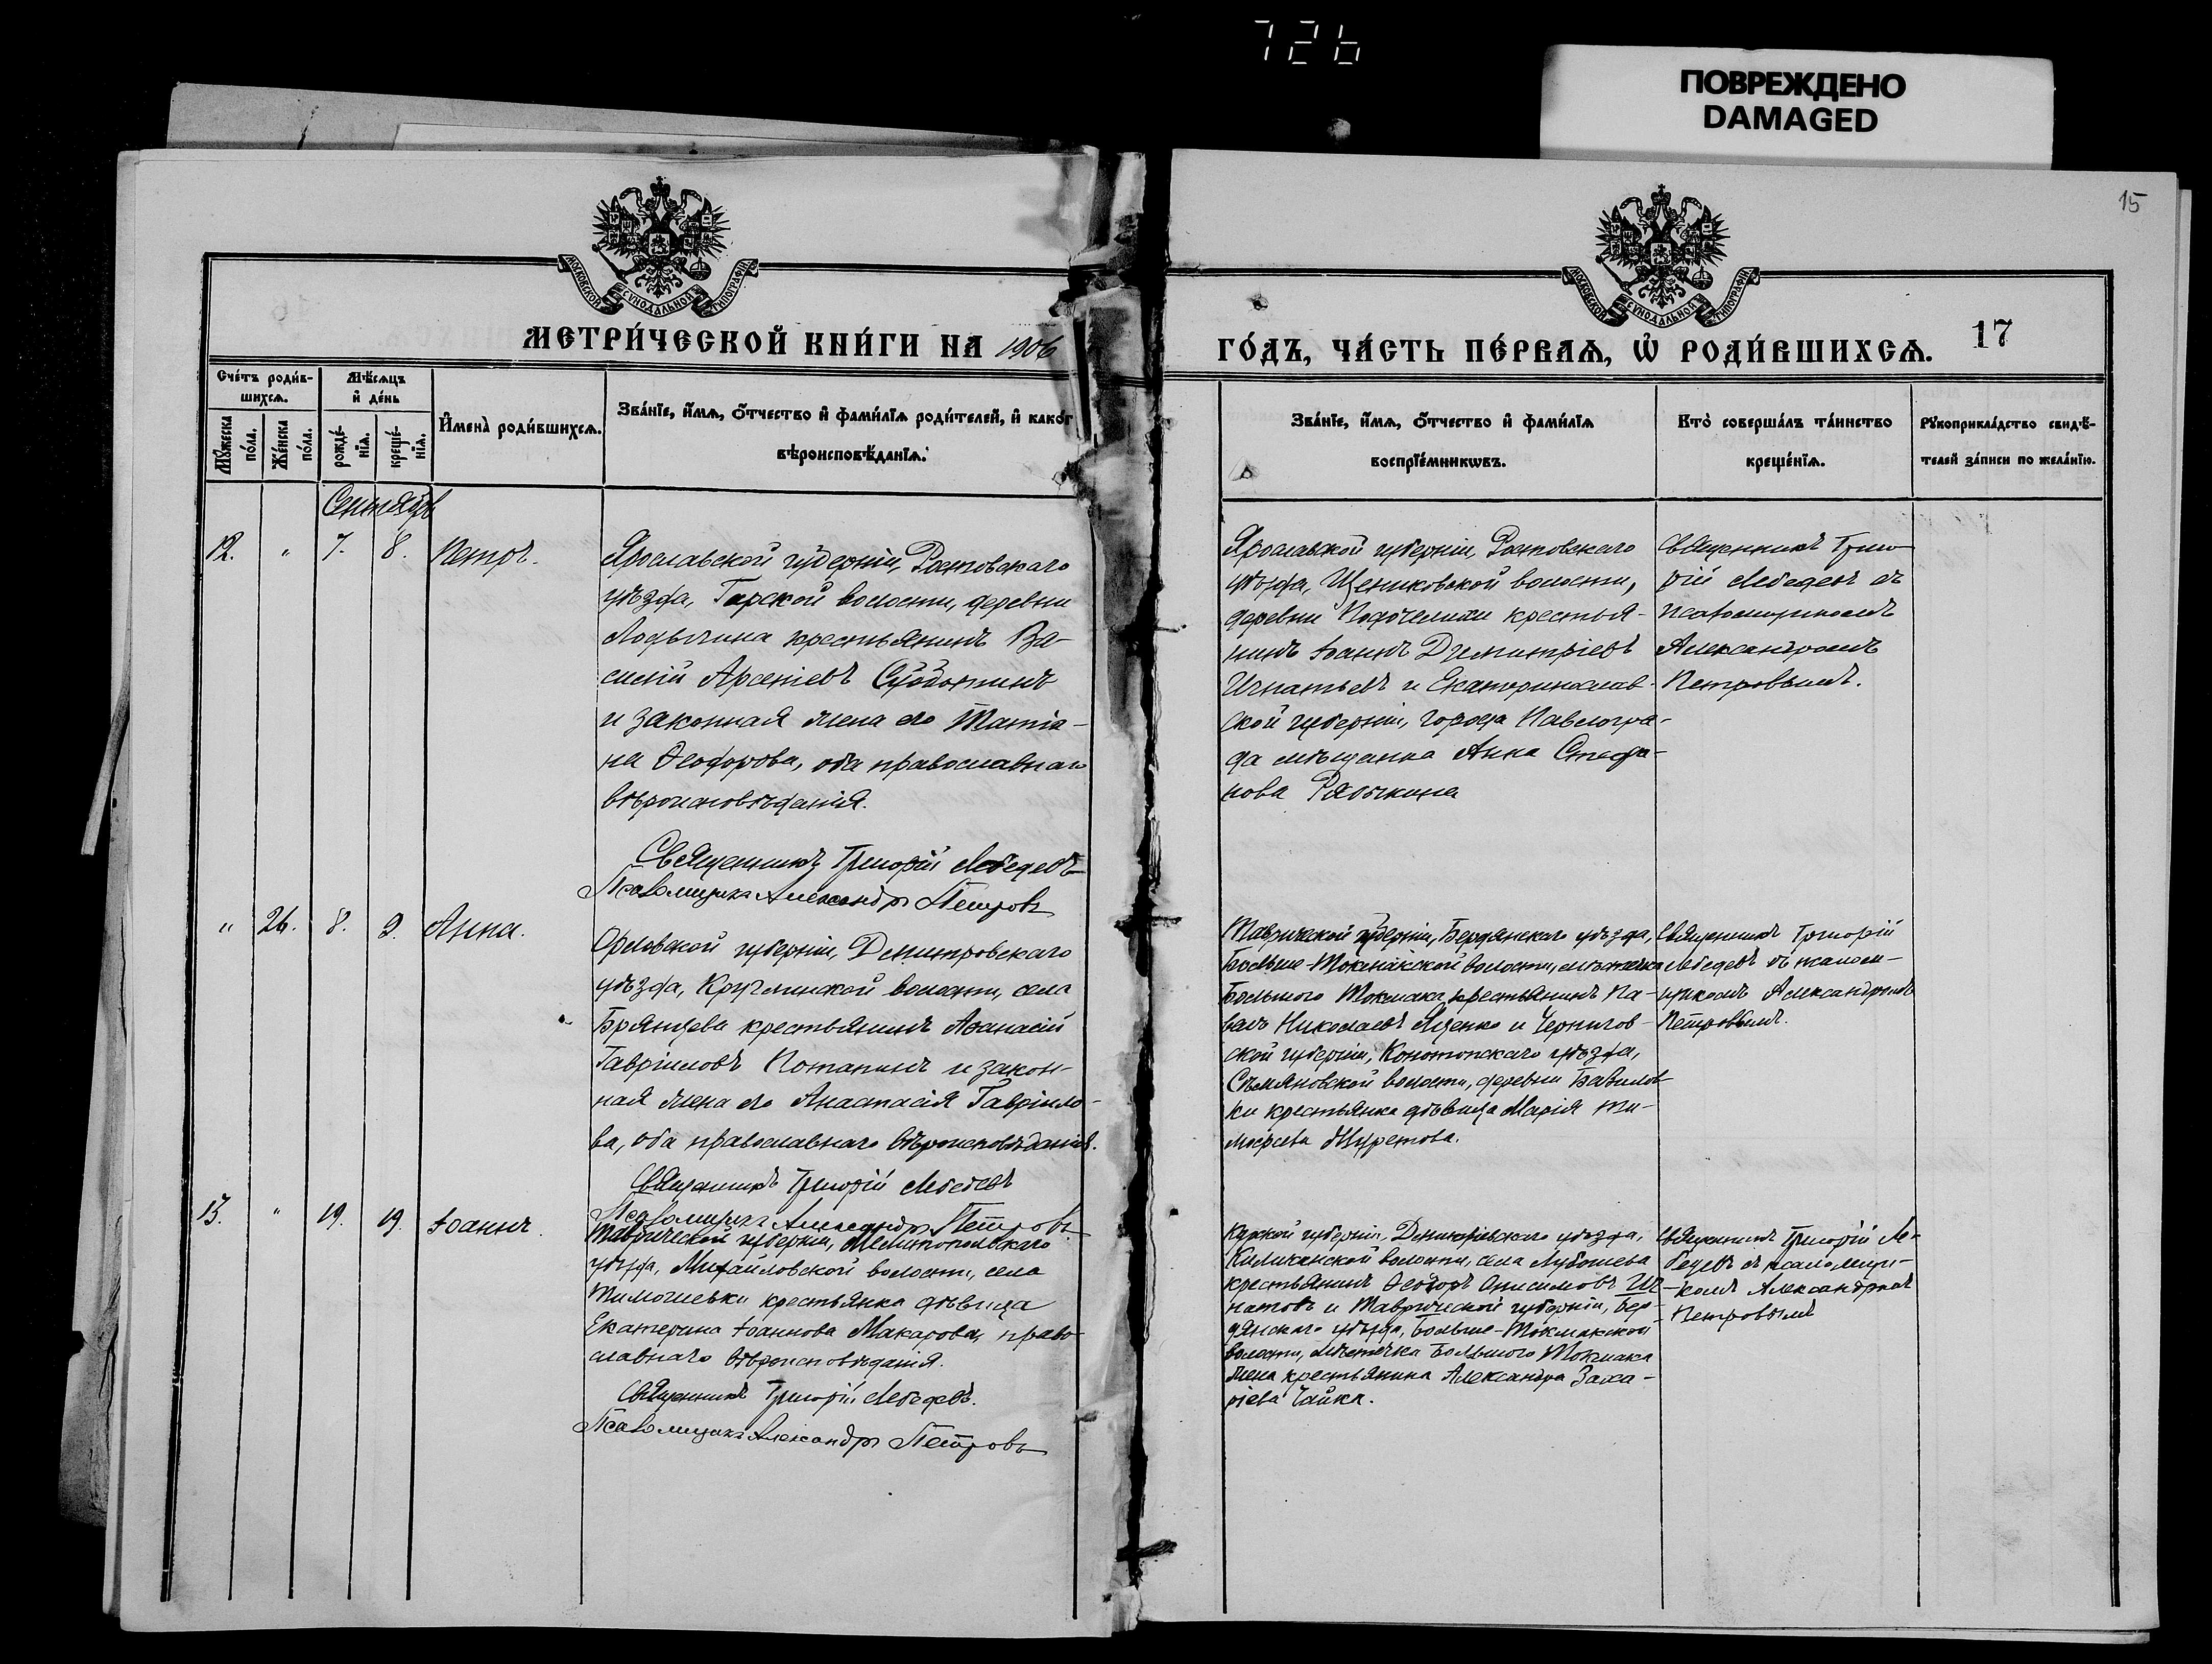 726
ПОВРЕЖДЕНО
DAMAGED
15
МОСКОВСКОЙ СУНОДАЛЬНОЙ ТИПОГРАФІИ
МОСКОВСКОЙ СУНОДАЛЬНОЙ ТИПОГРАФІИ
МЕТРИ́ЧЕСКОЙ КНИ́ГИ НА 1906
ГО́ДЪ, ЧА́СТЬ ПЕ́РВАѦ, Ѡ҆ РОДИ́ВШИХСѦ. 17
Сче́тъ роди́в-
шихсѧ.
Мꙋ́жеска по́ла.
Же́нска по́ла.
Мѣ́сѧцъ
и҆ де́нь
рожде́-
нїѧ.
креще́-
нїѧ.
И҆мена̀ роди́вшихсѧ.
Зва́нїе, и҆́мѧ, ѻ҆́тчество и҆ фами́лїѧ роди́телей, и҆ како́г
вѣроисповѣ́данїѧ.
Зва́нїе, и҆́мѧ, ѻ҆́тчество и҆ фами́лїѧ
воспрїе́мникѡвъ.
Кто̀ соверша́лъ та́инство
креще́нїѧ.
Рꙋкоприкла́дство свидѣ́-
телей за́писи по жела́нїю.
Сентябрь
12. " 7. 8. Петръ.
Ярославской губерніи, Ростовскаго
уѣзда, Гарской волости, деревни
крестьянинъ Ва-
силій Арсеніевъ Субботинъ
и законная жена его Татіа-
на Ѳеодорова, оба православнаго
вѣроисповѣданія.
Священникъ Григорій Лебедевъ
Псаломщикъ Александръ Петровъ
Ярославской губерніи, Ростовскаго
уѣзда, Щениковской волости,
деревни крестья-
нинъ Іоаннъ Димитріевъ
Игнатьевъ и Екатеринослав-
ской губерніи, города Павлогра-
да мѣщанка Анна Стефа-
нова
Священникъ Григо-
рій Лебедевъ съ
псаломщикомъ
Александромъ
Петровымъ.
" 26. 8. 9. Анна.
Орловской губерніи, Дмитровскаго
уѣзда, Круглинской волости, села
Брянцева крестьянинъ Аѳанасій
Гавріиловъ Потапинъ и закон-
ная жена его Анастасія Гавріило-
ва, оба православнаго вѣроисповѣданія.
Священникъ Григорій Лебедевъ
Псаломщикъ Александръ Петровъ
Таврической губерніи, Бердянскаго уѣзда,
Больше-Токмакской волости, мѣстечка
Большого Токмака крестьянинъ Па-
велъ Николаевъ Яценко и Чернигов-
ской губерніи, Конотопскаго уѣзда,
волости, деревни
ки крестьянка дѣвица Марія Ти-
моѳеева
Священникъ Григорій
Лебедевъ съ псалом-
щикомъ Александромъ
Петровымъ.
13. " 19. 19. Іоаннъ.
Таврической губерніи, Мелитопольскаго
уѣзда, Михайловской волости, села
Тимошевки крестьянка дѣвица
Екатерина Іоаннова Макарова, право-
славнаго вѣроисповѣданія.
Священникъ Григорій Лебедевъ.
Псаломщикъ Александръ Петровъ
губерніи, уѣзда,
волости, села Лубошева
крестьянинъ Ѳеодоръ Онисимовъ Иг-
натовъ и Таврической губерніи, Бер-
дянскаго уѣзда, Больше-Токмакской
волости, мѣстечка Большого Токмака
жена крестьянина Александра Заха-
ріева Чайка.
Священникъ Григорій Ле-
бедевъ съ псаломщи-
комъ Александромъ
Петровымъ